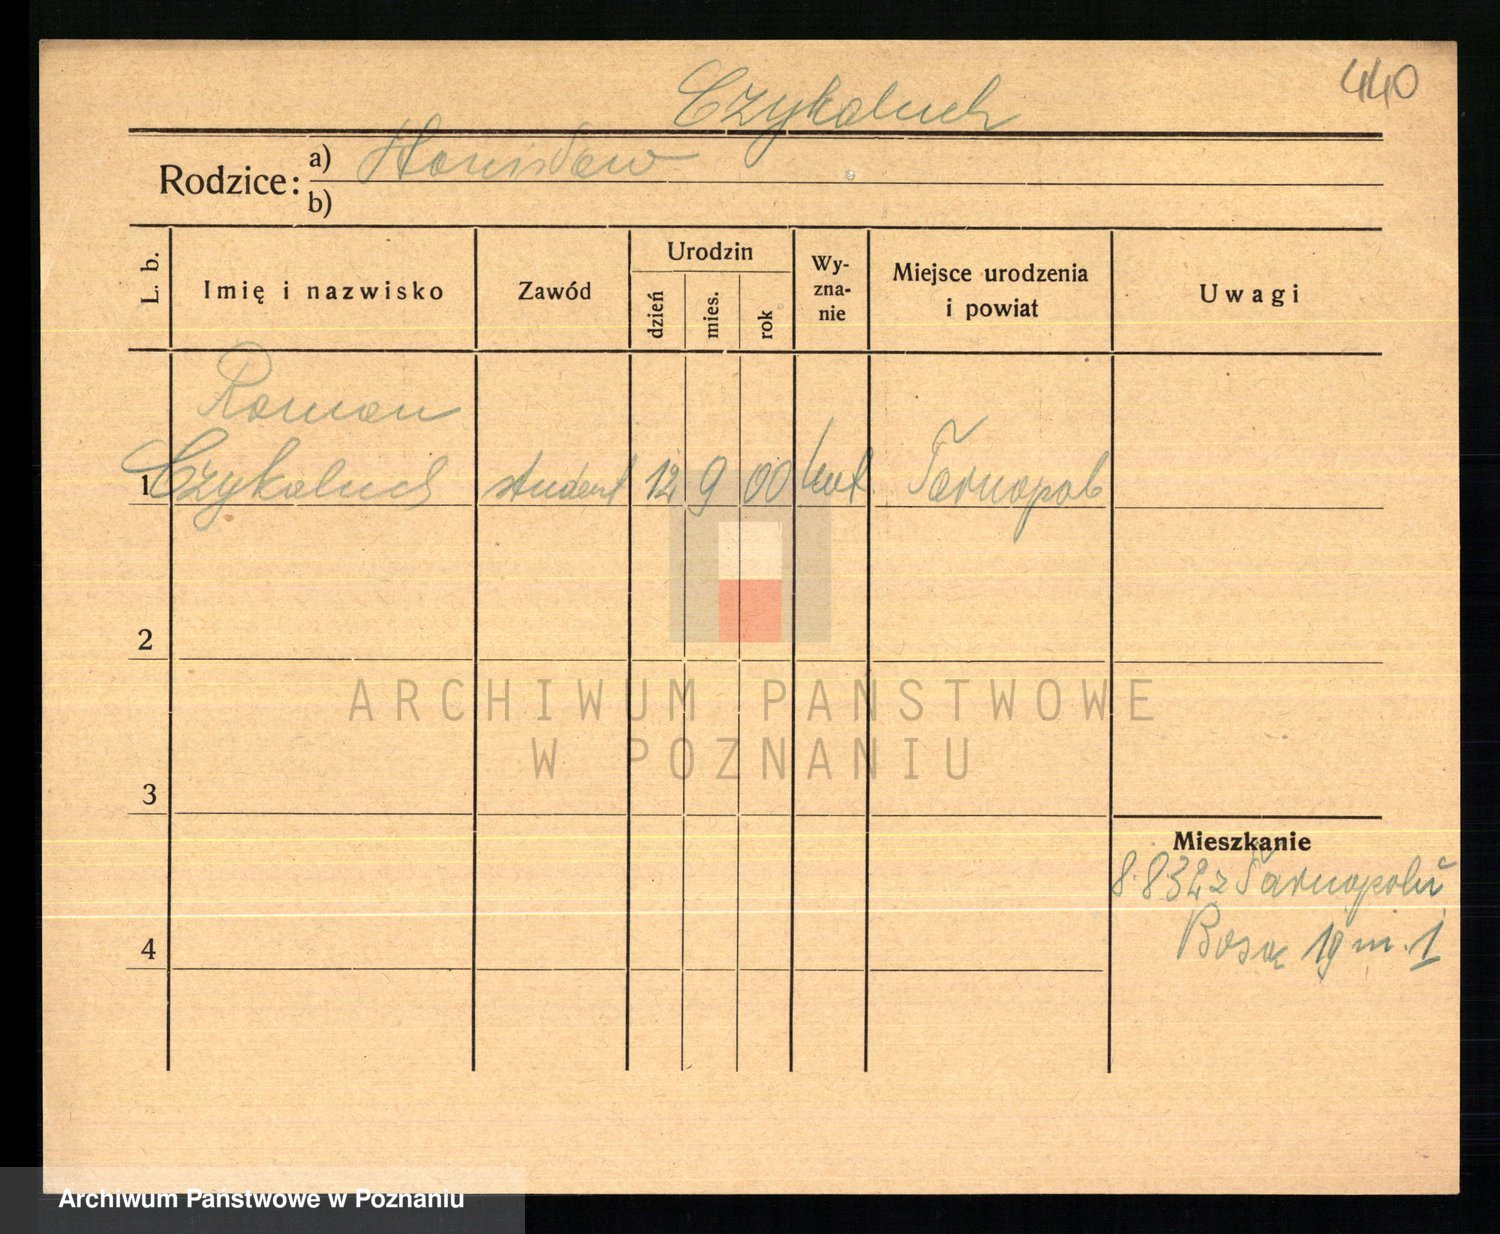 440
Czykaluch
Rodzice: a) Stanisław
b)
L. b.
Imię i nazwisko
Zawód
Urodzin
dzień
mies.
rok
Wy-
zna-
nie
Miejsce urodzenia
i powiat
Uwagi
Roman
1 Czykaluch student 12 9 00 kat Tarnopol
2
ARCHIWUM PAŃSTWOWE
W POZNANIU
3
Mieszkanie
8.8 32 z Tarnopolu
4
19 m. 1
Archiwum Państwowe w Poznaniu